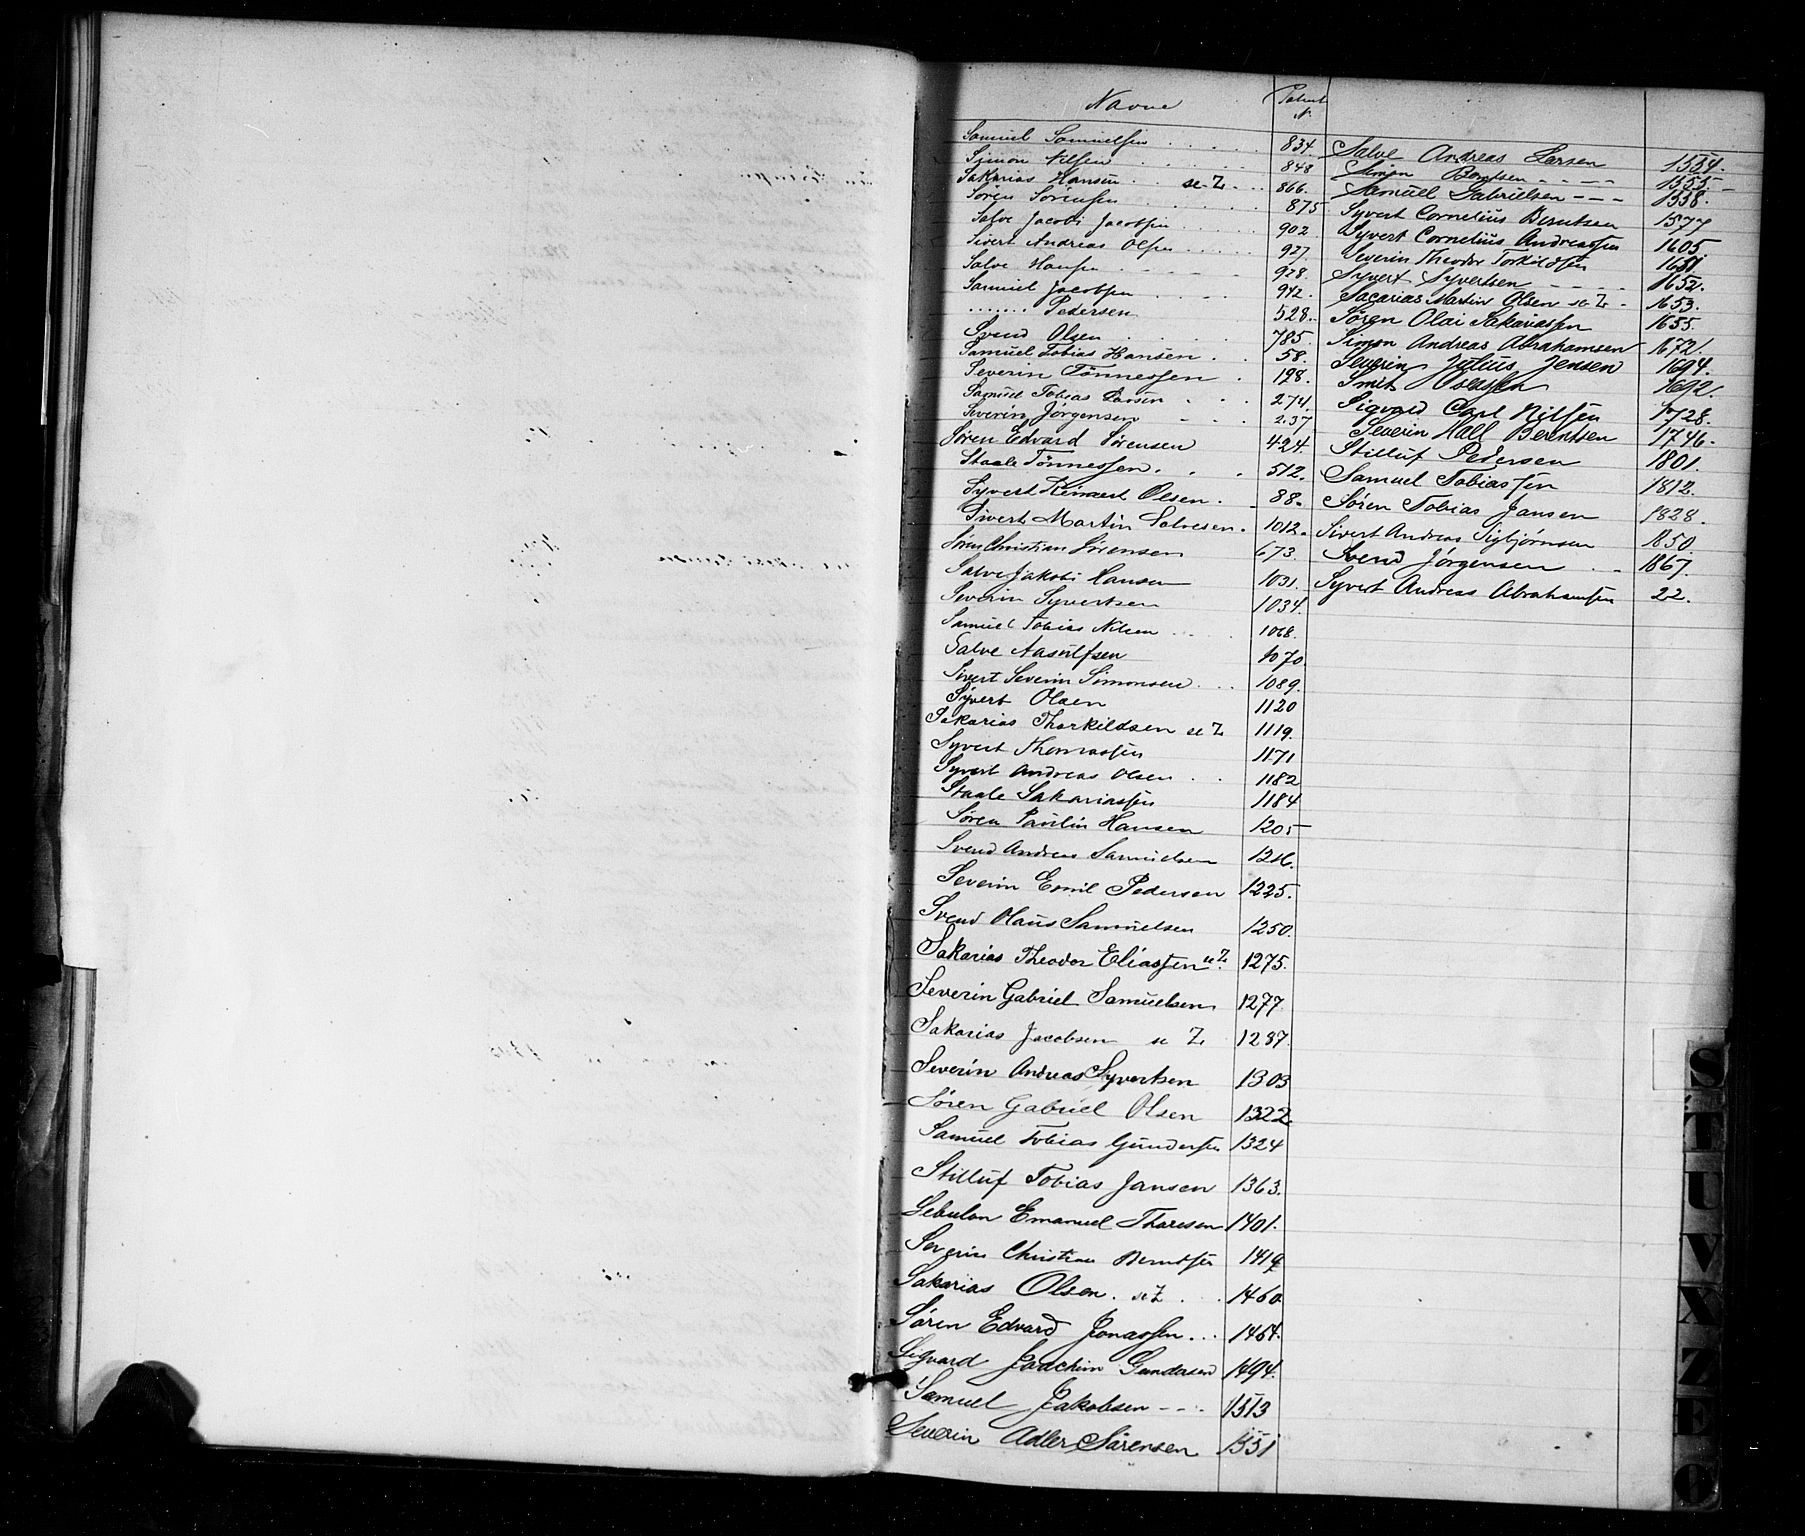 Navne Patent N.
Samuel Samuelsen 834.
Simon Nilsen 848
Sakarias Hansen se Z 866.
Søren Sørensen 875
Salve Jacobi Jacobsen 902
Sivert Andreas Olsen 927.
Salve Hansen 928.
Samuel Jacobsen 942.
....... Pedersen 528.
Svend Olsen 785.
Samuel Tobias Hansen 58.
Severin Tönnessen 198.
Samuel Tobias Larsen 274.
Severin Jørgensen 237
Søren Edvard Sørensen 424.
Staale Tönnessen 512.
Syvert Reinert Olsen 88.
Sivert Martin Salvesen 1012.
Søren Christian Sørensen 673.
Salve Jakobi Hansen 1031.
Severin Syvertsen 1034.
Samuel Tobias Nilsen 1068.
Salve Aasulfsen 1070
Sivert Severin Simonsen 1089.
Syvert Olsen 1120
Sakarias Thorkildsen se Z 1119.
Syvert Thomassen 1171
Syvert Andreas Olsen 1182
Staale Sakariassen 1184
Søren Paulin Hansen 1205
Svend Andreas Samuelsen 1216.
Severin Emil Pedersen 1225.
Svend Olaus Samuelsen 1250.
Sakarias Theodor Eliassen se Z. 1275.
Severin Gabriel Samuelsen 1277.
Sakarias Jacobsen se Z. 1287.
Severin Andreas Syvertsen 1303
Søren Gabriel Olsen 1322
Samuel Tobias Gundersen 1324
Stilluf Tobias Jansen 1363.
Sebulon Emanuel Tharesen 1401.
Severin Christian Berntsen 1419
Sakarias Olsen. se Z 1460.
Søren Edvard Jonassen 1464.
Sigvard Joachim Gundersen 1494.
Samuel Jakobsen 1513
Severin Adler Sørensen 1551
Salve Andreas Larsen 1554.
Simon Bentsen 1555.
Samuel Gabrielsen 1558.
Syvert Cornelius Berntsen 1577
Syvert Cornelius Andreassen 1605.
Severin Theodor Torkildsen 1631
Syvert Syvertsen 1652.
Sacarias Martin Olsen se Z 1653.
Søren Olai Sakariassen 1655.
Simon Andreas Abrahamsen 1672.
Severin Julius Jensen 1694.
Smith Olsen 1692.
Sigvald Carl Nilsen 1728.
Severin Hall Berentsen 1746.
Stilluf Pedersen 1801.
Samuel Tobiassen 1812.
Søren Tobias Jansen 1828.
Sivert Andreas Sigbjørnsen 1850.
Svend Jørgensen 1867.
Syvert Andreas Abrahamsen 22.
S
T
U
V
X
Z
Æ
Ø